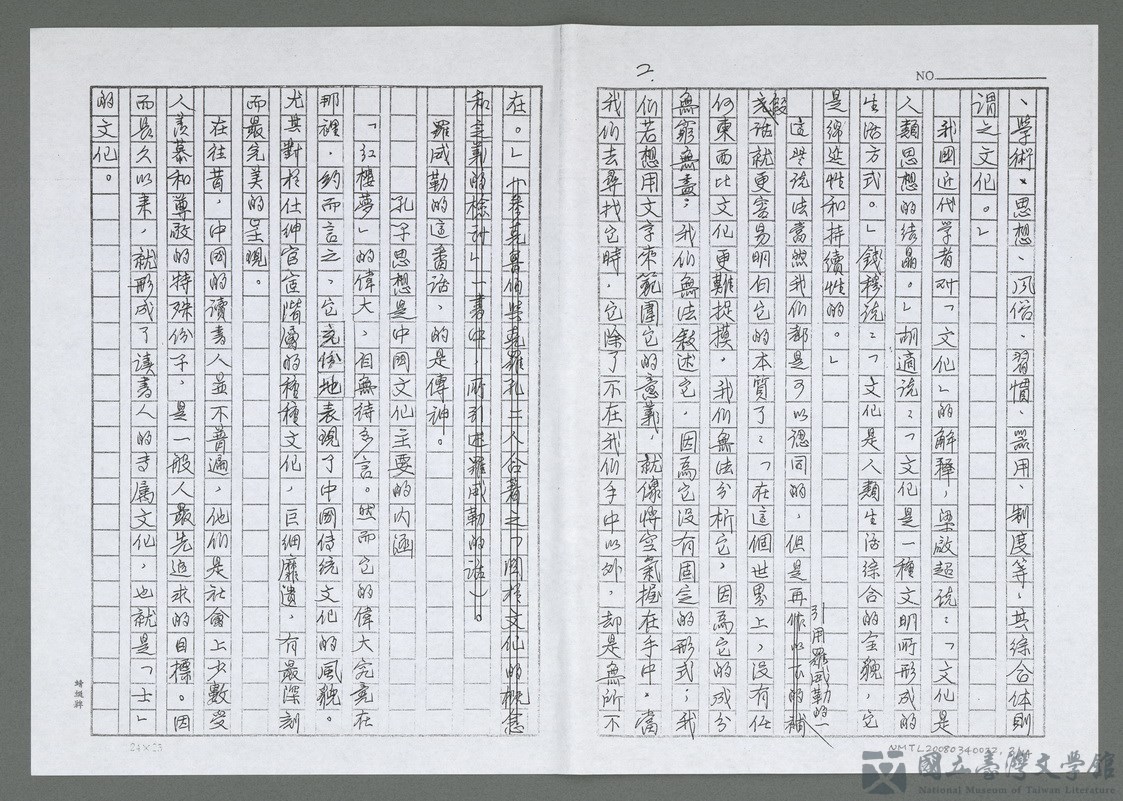 NO.
2.
、學術、思想、風俗、習慣、器用、制度等,其綜合体則
謂之文化。」
我國近代学者对「文化」的解釋,梁啟超說:「文化是
人類思想的結晶。」胡適說:「文化是一種文明所形成的
生活方式。」錢穆說:「文化是人類生活綜合的全貌,它
是綿延性和持續性的。」
這些說法當然我們都是可以認同的,但是再作以下的補
引用羅威勒的
段話就更容易明白它的本質了:「在這個世界上,沒有任
何東西比文化更難捉摸,我們無法分析它,因為它的成分
無窮無盡;我們無法敍述它,因為它沒有固定的形式;我
們若想用文字來範圍它的意義,就像將空氣握在手中,當
我們去尋找它時,它除了不在我們手中以外,却是無所不
在。」(參克魯伯與克羅孔二人合著之「関於文化的概念
和定義的檢討」一書中,所引述羅威勒的話)。
羅威勒的這番話,的是傳神。
孔子思想是中国文化主要的内涵
「紅樓夢」的偉大,自無待多言。然而它的偉大究竟在
那裡,約而言之,它充份地表現了中國传統文化的風貌。
尤其對於仕紳官宦階層的種種文化,巨細靡遺,有最深刻
而最完美的呈現。
在往昔,中國的讀書人並不普遍,他们是社會上少數受
人羨慕和尊敬的特殊份子,是一般人最先追求的目標。因
而長久以来,就形成了读書人的专属文化,也就是「士」
的文化。
24×25
NMTL20080340032
國立臺灣文学館
National Museum of Taiwan Literature